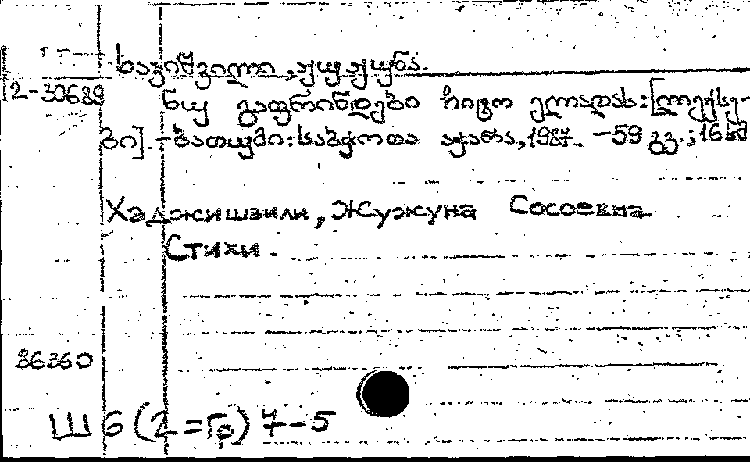 ხაჯიშვილი, ჟუჟუნა.
2-30689 ნუ გაფრინდები ჩიტო [ლექსე-
ბი]. - ბათუმი: საბჭოთა აჭარა, 1987. - 59 გვ.; 16სმ
Хаджишвили, Жужуна Сосоевна
Стихи.
86360
Ш6(2=Гр)7-5